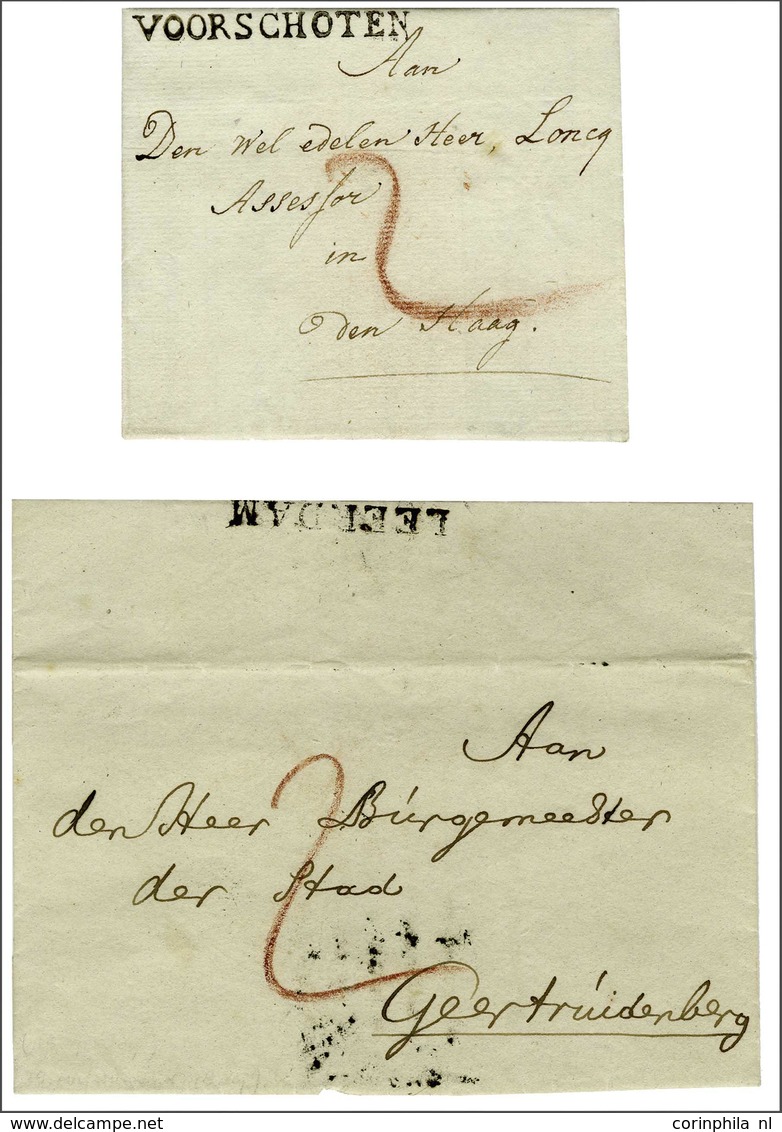 VOORSCHOTEN
Aan
Den Wel edelen Heer, Loncq
Assessor
in
den Haag.
2
LEERDAM
Aan
den Heer Búrgemeester
der Stad
Geertrúidenberg
2
corinphila nl